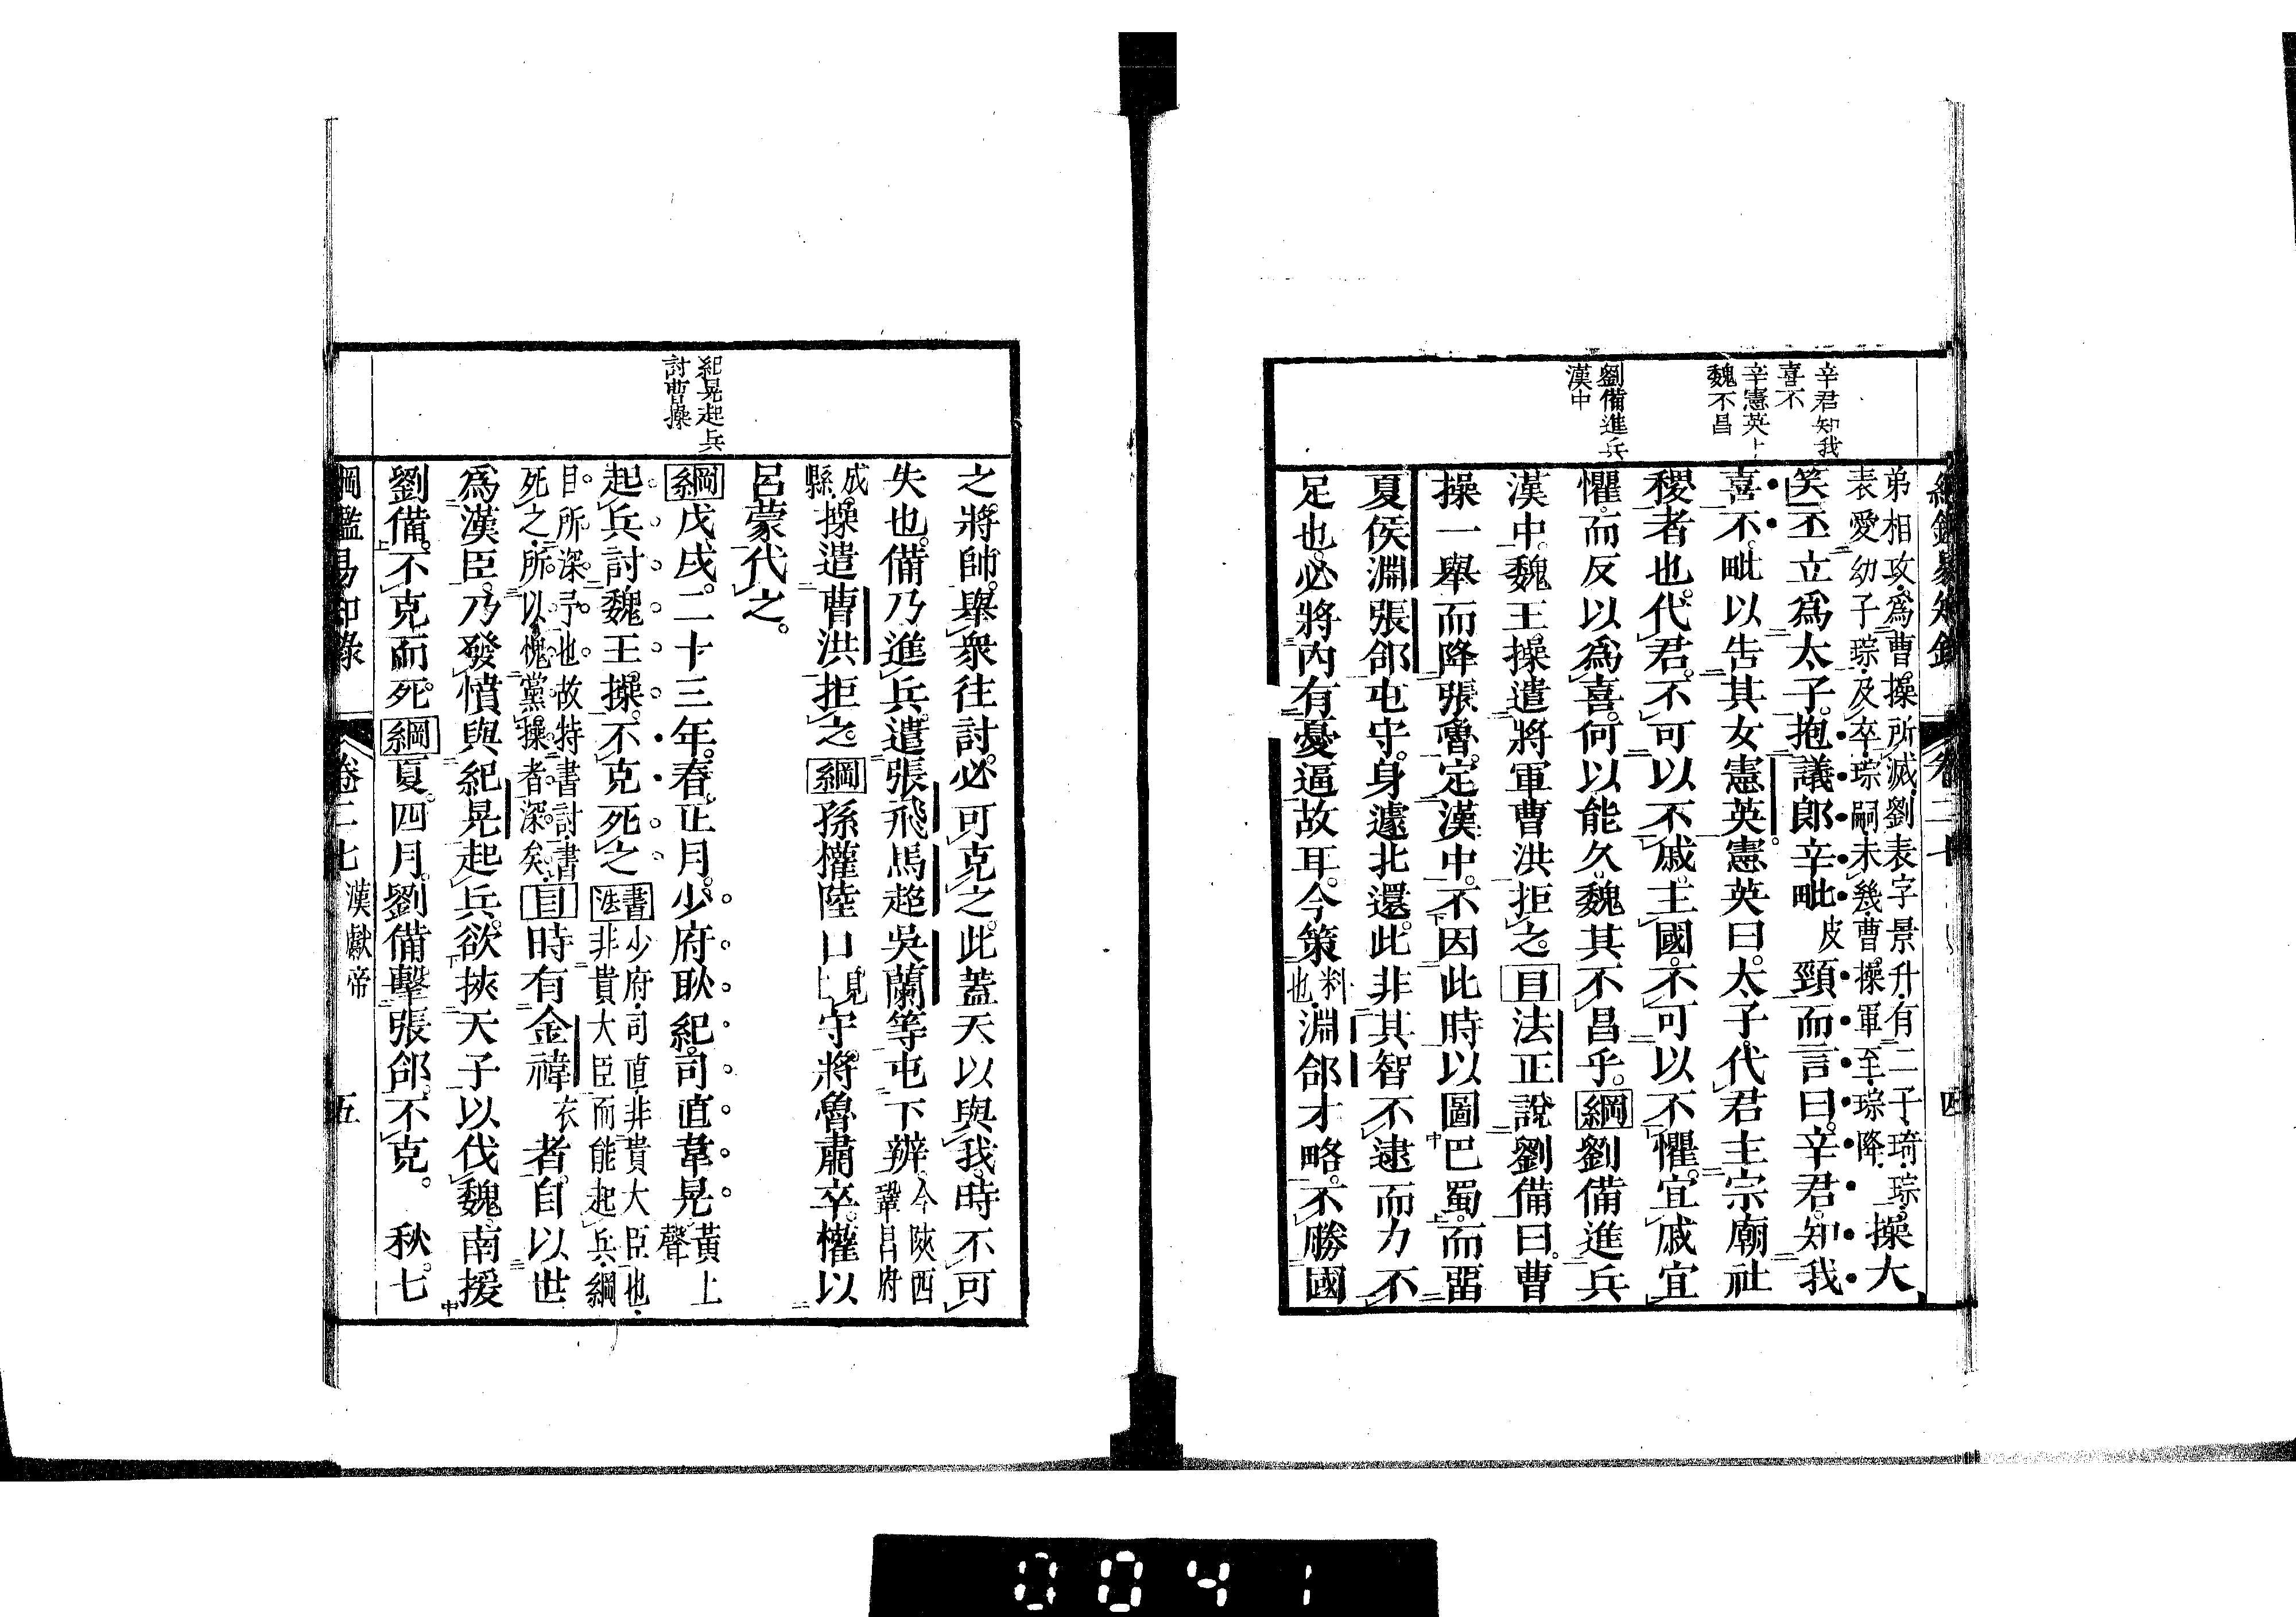 綱鑑易知錄
卷二七
四
辛君知我
喜不
辛憲英卜
魏不昌
劉備進兵
漢中
弟相攻爲曹操所滅劉表字景升有二子琦琮
表愛幼子琮及卒琮嗣未幾曹操軍至琮降
操大
笑丕立爲太子抱議郎辛毗皮頸而言曰辛君知我
喜不毗以告其女憲英憲英曰太子代君主宗廟社
稷者也代君不可以不戚主國不可以不懼宜戚宜
懼而反以爲喜何以能久魏其不昌乎綱劉備進兵
漢中魏王操遣將軍曹洪拒之目法正說劉備曰曹
操一舉而降張魯定漢中不因此時以圖巴蜀而畱
夏侯淵張郃屯守身遽北還此非其智不逮而力不
足也必將內有憂逼故耳今策料也淵郃才略不勝國
紀晃起兵
討曹操
之將帥舉衆往討必可克之此蓋天以與我時不可
失也備乃進兵遣張飛馬超吳蘭等屯下辨今陝西鞏昌府
成縣操遣曹洪拒之綱孫權陸口見上守將魯肅卒權以
呂蒙代之
綱戊戌二十三年春正月少府耿紀司直韋晃黃上聲
起兵討魏王操不克死之書法少府司直非貴大臣也
非貴大臣而能起兵綱
目所深予也故特書討書
死之所以愧黨操者深矣目時有金禕衣者自以世
爲漢臣乃發憤與紀晃起兵欲挾天子以伐魏南援
劉備不克而死綱夏四月劉備擊張郃不克 秋七
綱鑑易知錄
卷二七
漢獻帝
五
0041